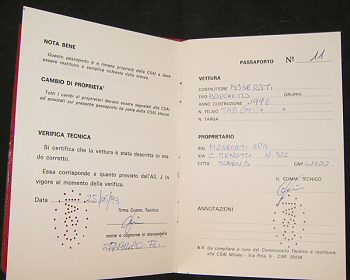 NOTA BENE
Questo passaporto è e rimane proprietà della CSAI e deve
essere restituito a semplice richiesta della stessa.
CAMBIO DI PROPRIETA'
Tutti i cambi di proprietari devono essere segnalati alla CSAI
ed annotati sul presente passaporto da parte della CSAI stessa.
VERIFICA TECNICA
Si certifica che la vettura è stata descritta in mo-
do corretto.
Essa corrisponde a quanto previsto dall'All. J in
vigore al momento della verifica.
Data 25/06/93
firma Comm. Tecnico
nome e cognome in stampatello
PASSAPORTO N° 11
VETTURA
COSTRUTTORE MASERATI
TIPO BARCHETTA GRUPPO
ANNO COSTRUZIONE 1992
N. TELAIO
N. TARGA
PROPRIETARIO
SIG. MASERATI SPA
VIA C. MENOTTI N. 322
CITTA' MODENA CAP 41100
IL COMM. TECNICO
ANNOTAZIONI
N.B. Da compilare a cura del Commissario Tecnico e restituire
alla CSAI Milano - Via Pola, 9 - CAP. 20124